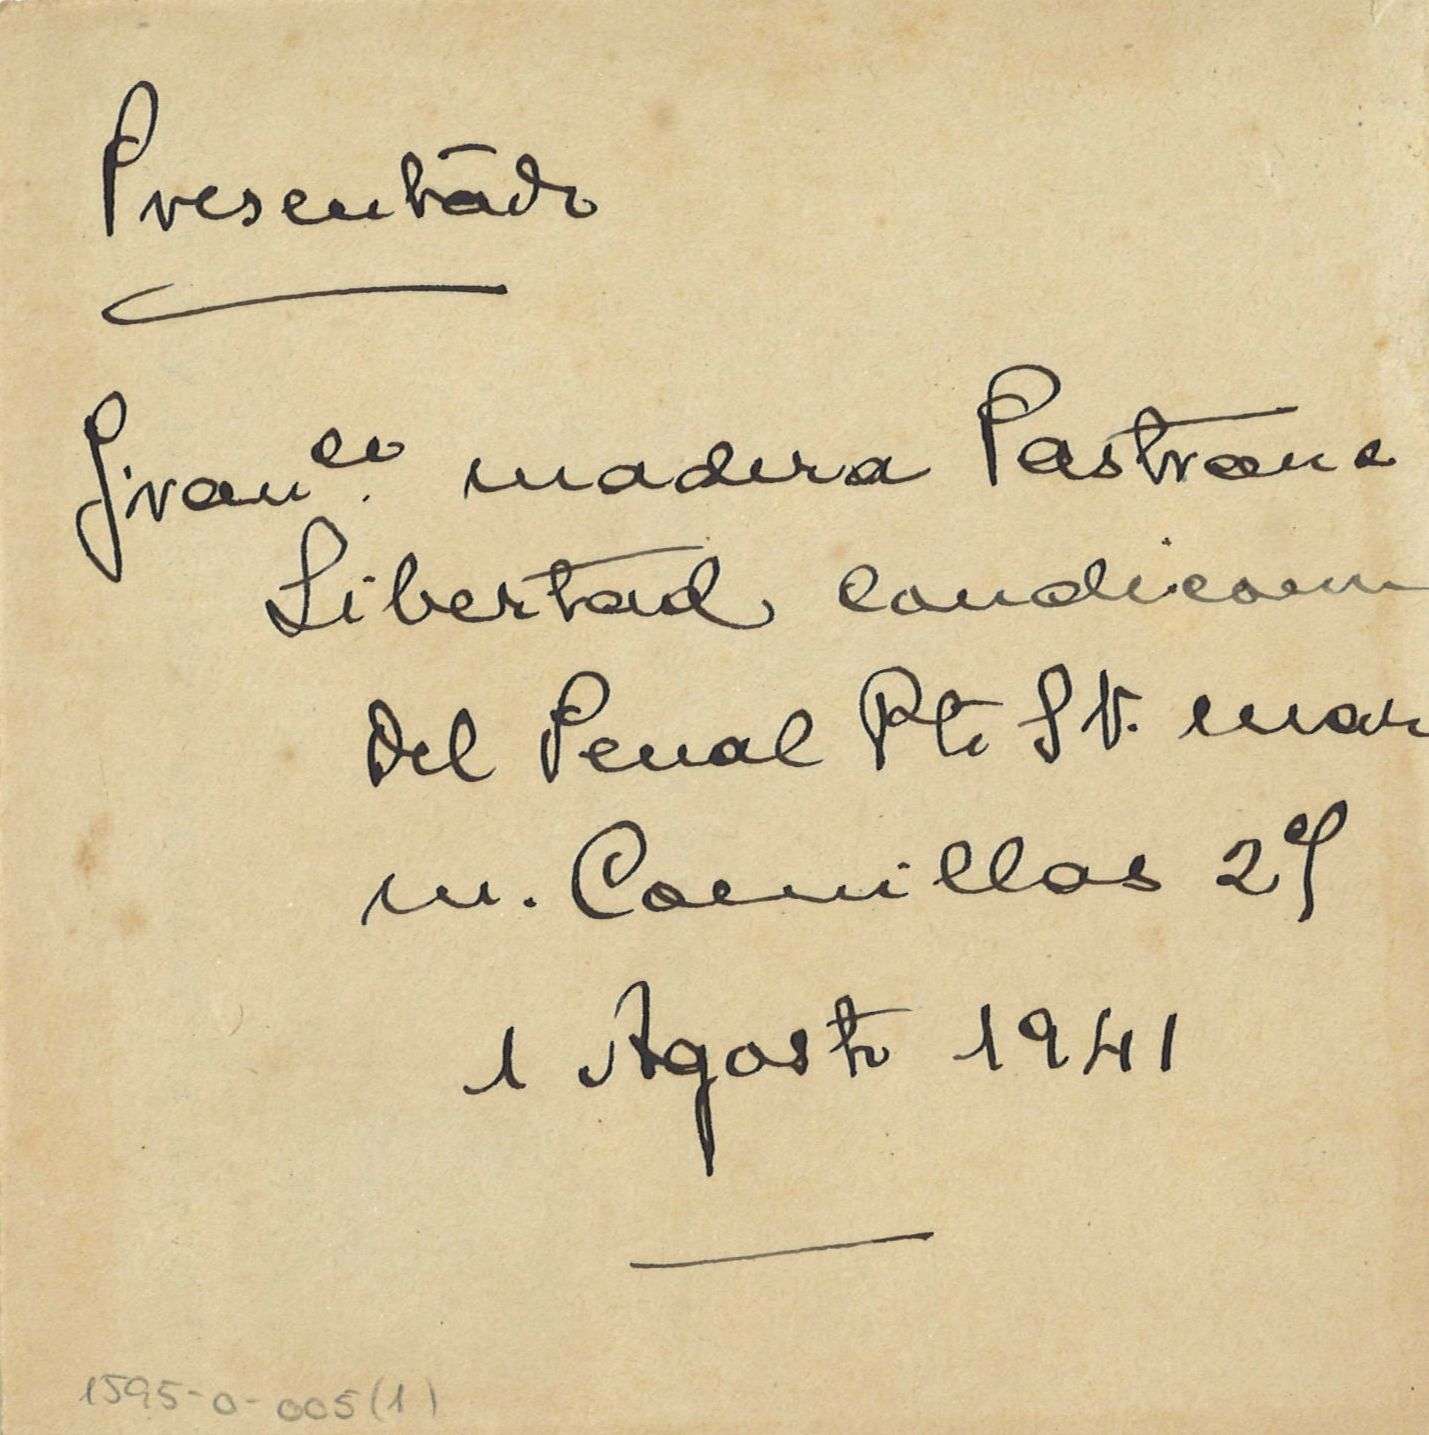 Presentado
Fran^co. madera Pastrana
Libertad condicion
del Penal Pto St. mar
m. Comillas 29
1 Agosto 1941
1595-0-005(1)